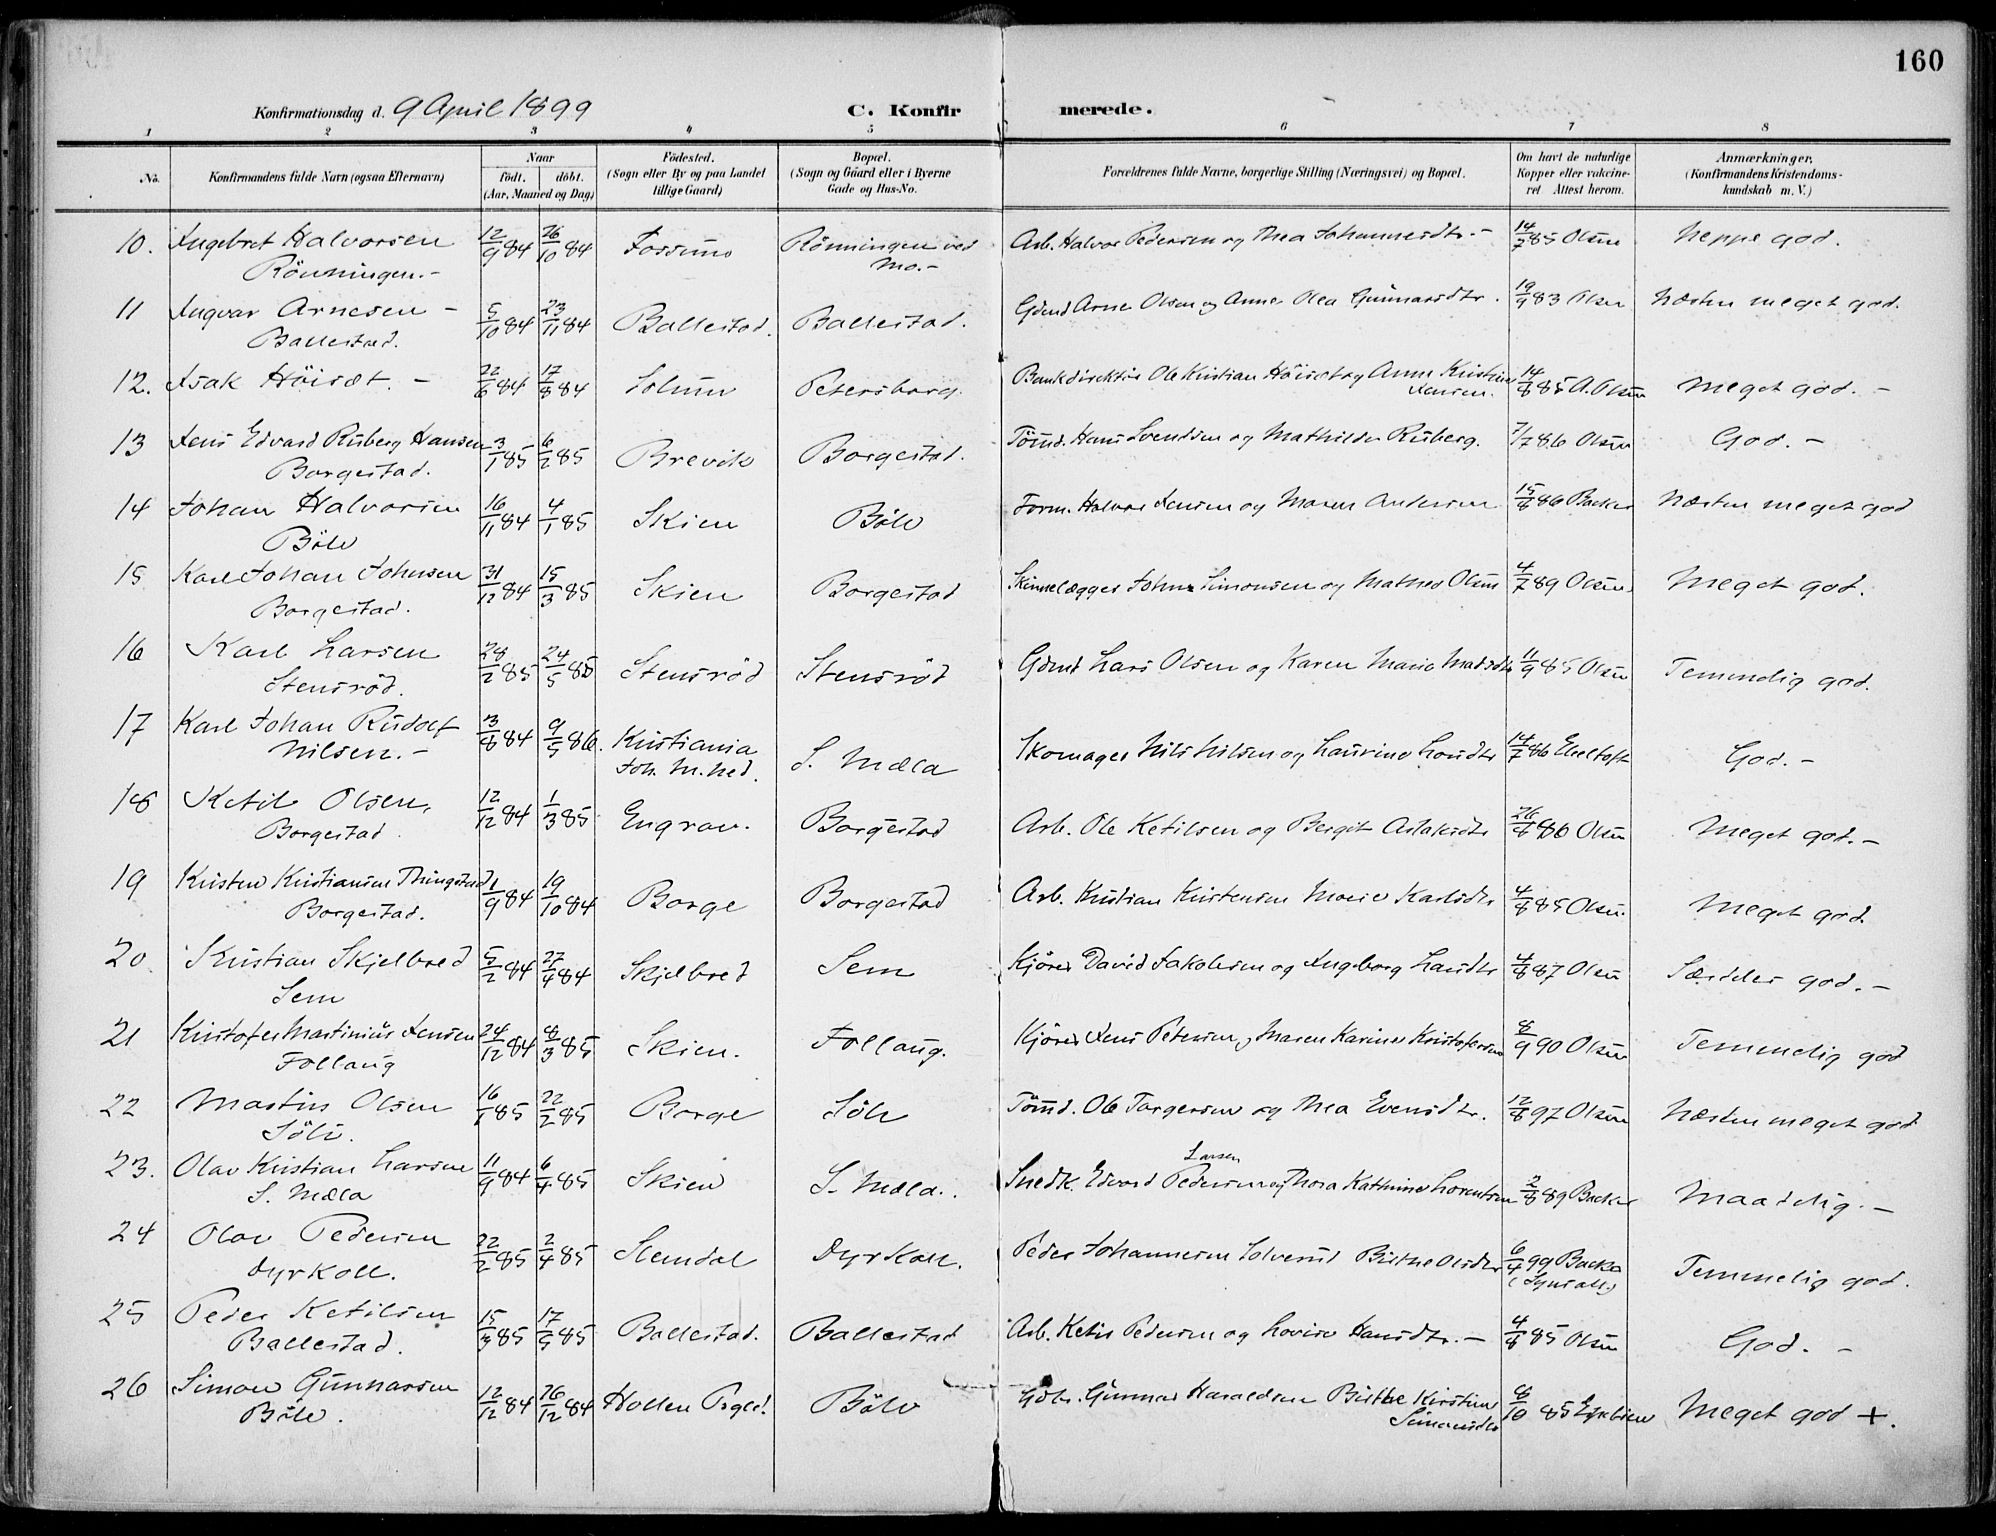 160
Konfirmationsdag d. 9 April 1899 C. Konfirmerede.
1 2 3 4 5 6 7 8
No. Konfirmandens fulde Navn (ogsaa Efternavn) Naar født. døbt. (Aar, Maaned og Dag) Fødested. (Sogn eller By og paa Landet tillige Gaard) Bopæl. (Sogn og Gaard eller i Byerne Gade og Hus-No. Forældrenes fulde Navne, borgerlige Stilling (Næringsvei) og Bopæl. Om havt de naturlige Kopper eller vaccineret Attest herom. Anmærkninger, (Konfirmandens Kristendomskundskab m. V.)
10. Ingebret Halvorsen 12/9 84 26/10 84 Fossum Rönningen ved Arb. Halvor Pedersen og Thea Johannesdtr. - 14/7 85 Olsen Neppe god.
Rönningen. - Mo. -
11 Ingvar Arnesen - 5/10 84 23/11 84 Ballestad. Ballestad. Gdmd Arne Olsen og Anne Olea Gunnarsdtr. 19/9 83 Olsen Næsten meget god.
Ballestad.
12. Isak Höisæt. - 22/6 84 17/8 84 Solum Petersborg. Bankdirektör Ole Kristian Höisæt og Anne Kristine 14/8 85 A. Olsen Meget god. -
Jensen.
13 Jens Edvard Ruberg Hansen 3/1 85 6/2 85 Brevik Borgestad. Tömd. Hans Svendsen og Mathilde Ruberg. 7/7 86 Olsen God. -
Borgestad.
14 Johan Halvorsen 16/11 84 4/1 85 Skien Böle Form. Halvor Jensen og Maren Andersen 15/8 86 Backer Næsten meget god
Böle
15 Karl Johan Johnsen 31/12 84 15/3 85 Skien Borgestad Skinnelægger John Simonsen og Mathea Olsen 4/7 89 Olsen. Meget god.
Borgestad.
16 Karl Larsen 28/2 85 24/5 85 Stensrød Stensrød Gdmd Lars Olsen og Karen Marie Madsdtr 11/9 85 Olsen Temmelig god.
Stensrød.
17 Karl Johan Rudolf 3/8 84 9/5 86. Kristiania S. Mæla Skomager Nils Nilsen og Laurine Larsdtr 14/7 86 Ebeltoft God. -
Nilsen. - Joh. M.hed.
18 Ketil Olsen, 12/12 84 1/3 85 Engrav. Borgestad Arb. Ole Ketilsen og Bergit Aslaksdtr 26/8 86 Olsen Meget god. -
Borgestad.
19 Kristen Kristiansen Thingstad 1/9 84 19/10 84 Borge Borgestad Arb. Kristian Kristensen Marie Karlsdtr 4/8 85 Olsen. Meget god
Borgestad.
20 Kristian Skjelbred 5/2 84 27/4 84 Skjelbred Sem Kjörer David Jakobsen og Ingeborg Larsdtr 4/8 87 Olsen Særdeles god. -
Sem
21 Kristofer Martinius Jensen 24/12 84 8/3 85 Skien. Follaug. Kjörer Jens Petersen og Maren Karine Kristofersen 8/9 90 Olsen Temmelig god
Follaug
22 Martin Olsen 16/1 85 22/2 85 Borge Söli Tömd. Ole Torgersen og Thea Evensdtr. 12/8 97 Olsen Næsten meget god
Söli.
23. Olav Kristian Larsen 11/9 84 6/4 85 Skien S. Mæla. Snedk. Edvard Pedersen Larsen og Thora Kathrine Lorentsen 2/8 89 Backer Maadelig. -
S. Mæla
24 Olav Pedersen 22/2 85 2/4 85 Slemdal Dyrkoll. Peder Johannesen Solverud Birthe Olsdtr 6/4 99 Backer Temmelig god.
Dyrkoll.
25 Peder Ketilsen 15/3 85 17/5 85 Ballestad. Ballestad Arb. Ketil Pedersen og Lovise Hansdtr. - 4/8 85 Olsen God. -
Ballestad.
26 Simon Gunnarsen 12/12 84 26/12 84 Hollen Böle Gdbr. Gunnar Haraldsen Birthe Kirstine 8/10 85 Meget god +.
Böle. Simonsdtr